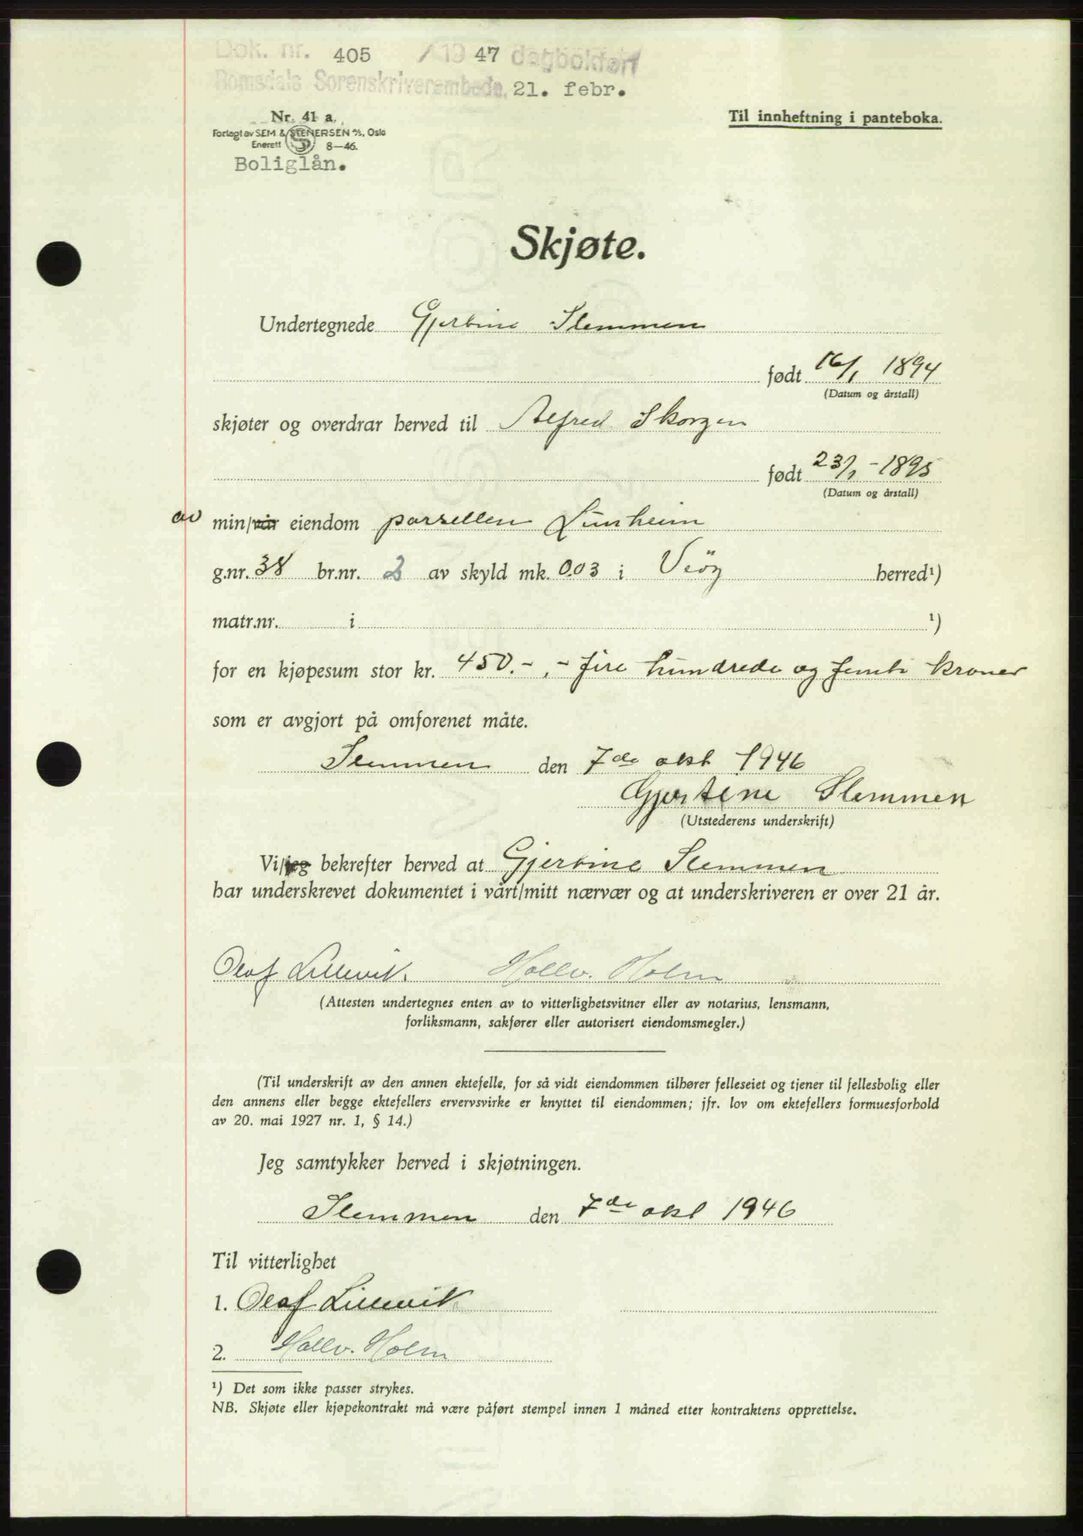 Dok. nr. 405 /19 47 dagbokført
Romsdals Sorenskriverembede, 21. febr.
Nr. 41 a.
Til innheftning i panteboka.
Forlagt av SEM & STENERSEN A/S, Oslo
Enerett 8—46.
Boliglån.
Skjøte.
Undertegnede Gjertine Slemmen
født 16/1 1894
(Datum og årstall)
skjøter og overdrar herved til Alfred Skorgen
født 23/1 - 1895
(Datum og årstall)
av min/vår eiendom parsellen Lunheim
g.nr. 38 br.nr. 2 av skyld mk. 0.03 i Veøy herred¹)
matr.nr. i ¹)
for en kjøpesum stor kr. 450.-, - fire hundrede og femti kroner
som er avgjort på omforenet måte.
Slemmen den 7de okt 1946
Gjertine Slemmen
(Utstederens underskrift)
Vi/jeg bekrefter herved at Gjertine Slemmen
har underskrevet dokumentet i vårt/mitt nærvær og at underskriveren er over 21 år.
Olaf Lillevik Hallv. Holm
(Attesten undertegnes enten av to vitterlighetsvitner eller av notarius, lensmann,
forliksmann, sakfører eller autorisert eiendomsmegler.)
(Til underskrift av den annen ektefelle, for så vidt eiendommen tilhører felleseiet og tjener til fellesbolig eller
den annens eller begge ektefellers ervervsvirke er knyttet til eiendommen; jfr. lov om ektefellers formuesforhold
av 20. mai 1927 nr. 1, § 14.)
Jeg samtykker herved i skjøtningen.
Slemmen den 7de okt 1946
Til vitterlighet
1. Olaf Lillevik
2. Hallv. Holm
¹) Det som ikke passer strykes.
NB. Skjøte eller kjøpekontrakt må være påført stempel innen 1 måned etter kontraktens opprettelse.